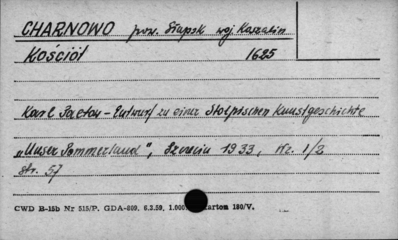 CHARNOWO pow. Słupsk woj. Koszalin
Kościół 1625
Karl Paetow - Entwurf zu einer Stolpischen Kunstgeschichte
„Unser Pommerland", Szczecin 1933, Nr. 1/2
str. 57
CWD B-15b Nr 515/P. GDA-809. 6.3.59. 1.000 karton 180/V.